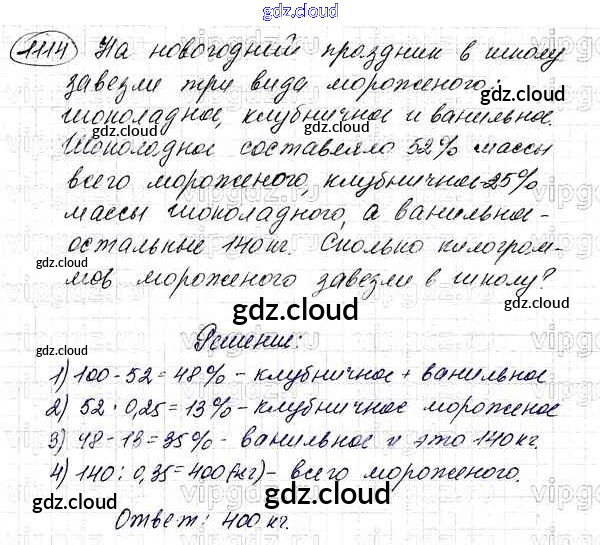 gdz.cloud
gdz.cloud
1114 На новогодний праздник в школу
завезли три вида мороженого:
шоколадное, клубничное и ванильное.
gdz.cloud gdz.cloud
Шоколадное составляло 52% массы
всего мороженого, клубничное-25%
массы шоколадного, а ванильное-
остальные 140 кг. Сколько килограм-
gdz.cloud gdz.cloud
мов мороженого завезли в школу?
gdz.cloud
Решение:
gdz.cloud gdz.cloud
1) 100-52=48% - клубничное + ванильное
2) 52·0,25=13% - клубничное мороженое
3) 48-13=35% - ванильное и это 140 кг.
4) 140:0,35=400(кг)- всего мороженого.
gdz.cloud gdz.cloud
gdz.cloud
Ответ: 400 кг.
gdz.cloud